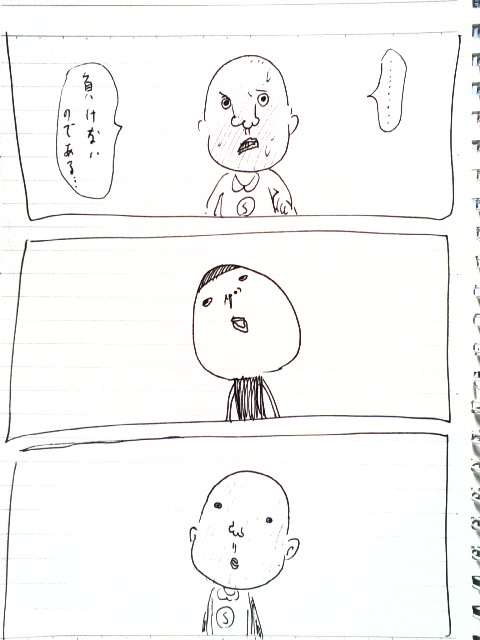 …………
負けない
のである…
S
S